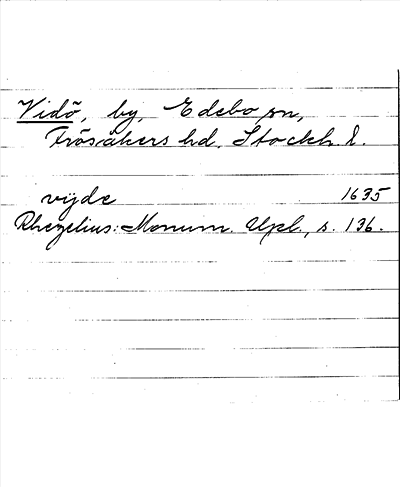 Vidö, by, Edebo sn,
Frösåkers hd, Stockh. l.
vijde 1635
Rhezelius: Monum. Upl., s. 136.